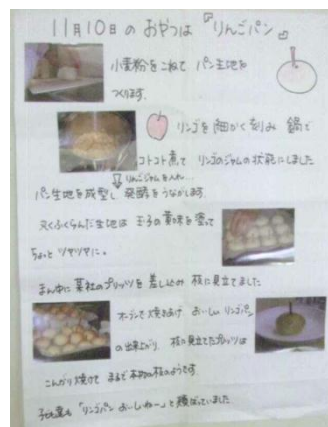 11月10日のおやつは『りんごパン』
小麦粉をこねてパン生地を
つくります。
リンゴを細かく刻み 鍋で
コトコト煮て リンゴのジャムの状態にしました
りんごジャムを入れ...
パン生地を成型し 発酵をうながします。
ふくらんだ生地は 玉子の黄味を塗って
ちょっとツヤツヤに。
まん中に某社のプリッツを差し込み 枝に見立てました
オーブンで焼きあげ おいしいリンゴパン
の出来上がり 枝に見立てたプリッツは
こんがり焼けて まるで本物の枝のようです。
子ども達も「リンゴパン おいしいねー」と頬ばっていました